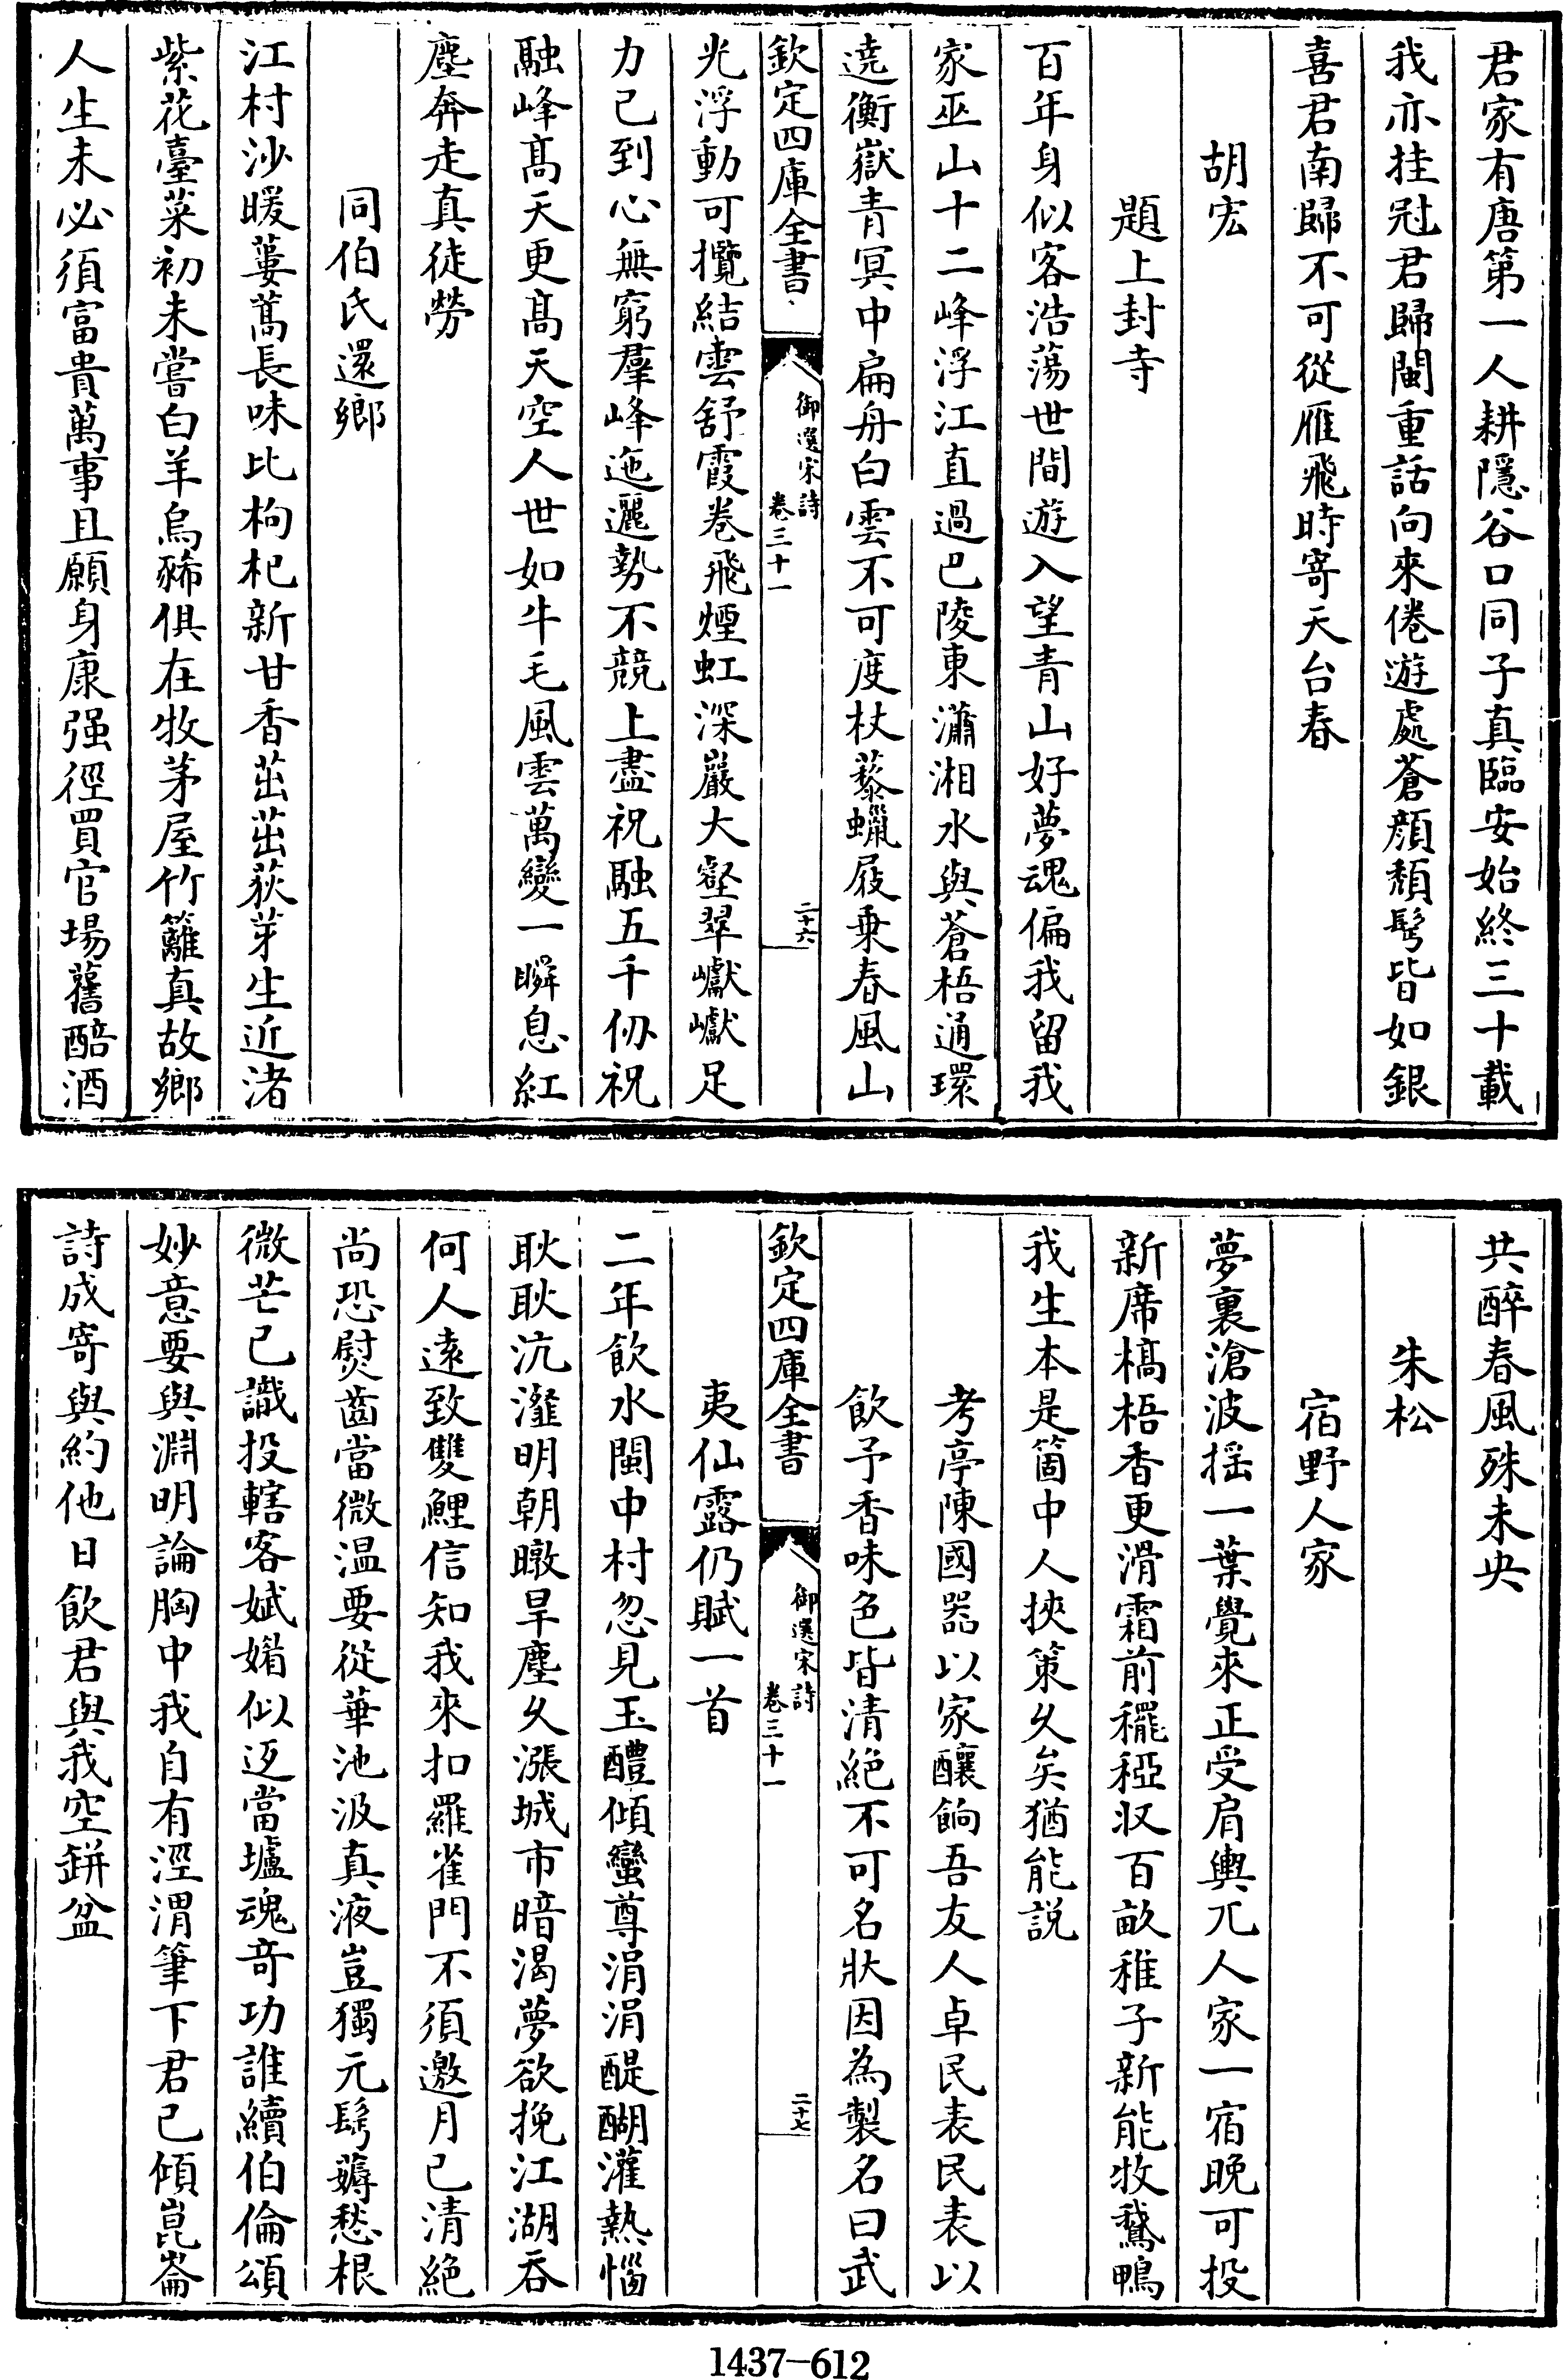 君家有唐第一人耕隱谷口同子真臨安始終三十載
我亦挂冠君歸閩重話向來倦遊處蒼顔頽髩皆如銀
喜君南歸不可從雁飛時寄天台春
胡宏
題上封寺
百年身似客浩蕩世間遊入望青山好夢魂偏我留我
家巫山十二峰浮江直過巴陵東瀟湘水與蒼梧通環
遶衡嶽青冥中扁舟白雲不可度杖藜蠟屐乗春風山
欽定四庫全書
御選宋詩
卷三十一
二十六
光浮動可攬結雲舒霞卷飛煙虹深巖大壑翠巘巘足
力已到心無窮羣峰迤邐勢不競上盡祝融五千仞祝
融峰髙天更髙天空人世如牛毛風雲萬變一瞬息紅
塵奔走真徒勞
同伯氏還鄉
江村沙暖蔞蒿長味比枸杞新甘香茁茁荻芽生近渚
紫花臺菜初未嘗白羊烏豨俱在牧茅屋竹籬真故鄉
人生未必須富貴萬事且願身康强徑買官場舊醅酒
共醉春風殊未央
朱松
宿野人家
夢裏滄波揺一葉覺來正受肩輿兀人家一宿晚可投
新席槁梧香更滑霜前䆉稏収百畝稚子新能牧鵞鴨
我生本是箇中人挾策乆矣猶能説
考亭陳國器以家釀餉吾友人卓民表民表以
飲予香味色皆清絶不可名狀因為製名曰武
欽定四庫全書
御選宋詩
卷三十一
二十七
夷仙露仍賦一首
二年飲水閩中村忽見玉醴傾蠻尊涓涓醍醐灌熱惱
耿耿沆瀣明朝暾旱塵乆漲城市暗渇夢欲挽江湖吞
何人遠致雙鯉信知我來扣羅雀門不須邀月已清絶
尚恐熨齒當微温要從華池汲真液豈獨元髩薅愁根
微芒已識投轄客娬媚似迓當壚魂竒功誰續伯倫頌
妙意要與淵明論胸中我自有涇渭筆下君已傾崑崙
詩成寄與約他日飲君與我空缾盆
1437-612